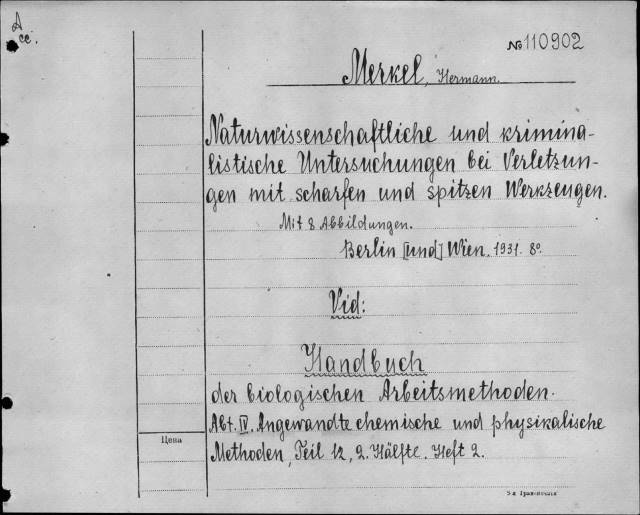 A
cc.
№110902
Merkel, Hermann.
Naturwissenschaftliche und krimina-
listische Untersuchungen bei Verletzun-
gen mit scharfen und spitzen Werkzeugen.
Mit 8 Abbildungen.
Berlin [und] Wien. 1931. 8º.
Vid:
Handbuch
der biologischen Arbeitsmethoden.
Abt. IV. Angewandte chemische und physikalische
Methoden, Teil 12, 2. Hälfte. Heft 2.
Цена